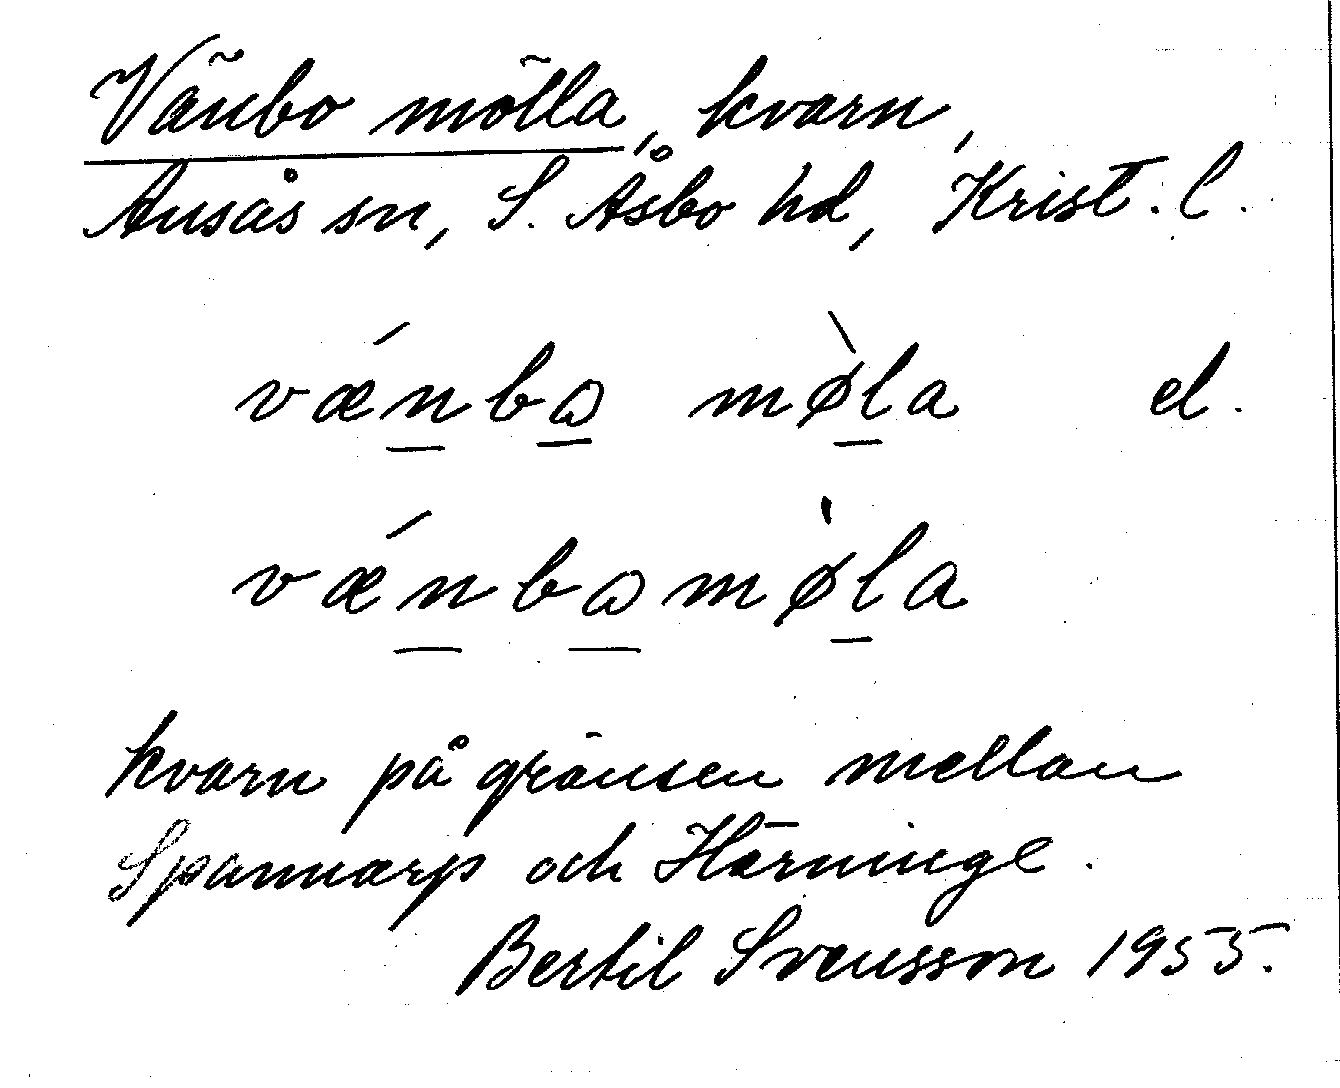 Vänbo mölla, kvarn,
Ausås sn, S. Åsbo hd, Krist. l.
vǽnbɷ mø̀la el.
vǽnbɷmø̀la
kvarn på gränsen mellan
Spannarp och Härninge.
Bertil Svensson 1955.